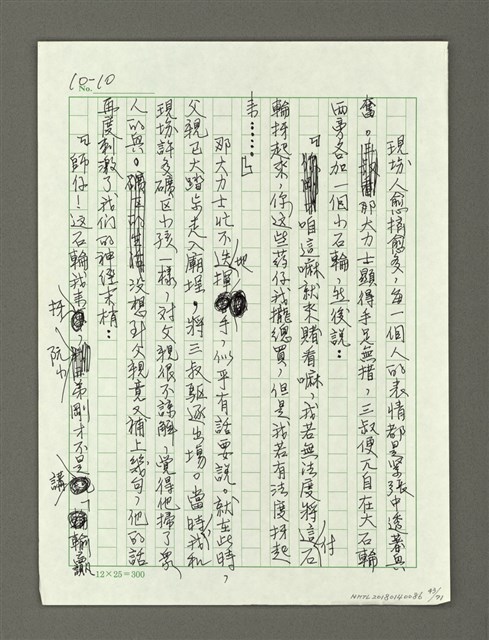 10-10
No.
現場人愈擠愈多，每一個人的表情都是緊張中透著興
奮。那大力士顯得手足無措，三叔便兀自在大石輪
兩旁各加一個小石輪，然後說：
「咱這嘛就來賭看嘛，我若無法度將這付石
輪抔起來，你这些葯仔我攏總買，但是我若有法度抔起
來……」
那大力士忙不迭地揮手，似乎有話要說。就在此時，
父親已大踏步走入廟埕，將三叔驅逐出場。當時我和
現場許多礦区小孩一樣，对父親很不諒解，覺得他掃了眾
人的興。沒想到父親竟又補上幾句，他的話
再度刺激了我们的神俓末梢：
「師仔！这石輪我來抔，阮小弟剛才不是講輸贏
12×25＝300
NMTL20180140286 43/71